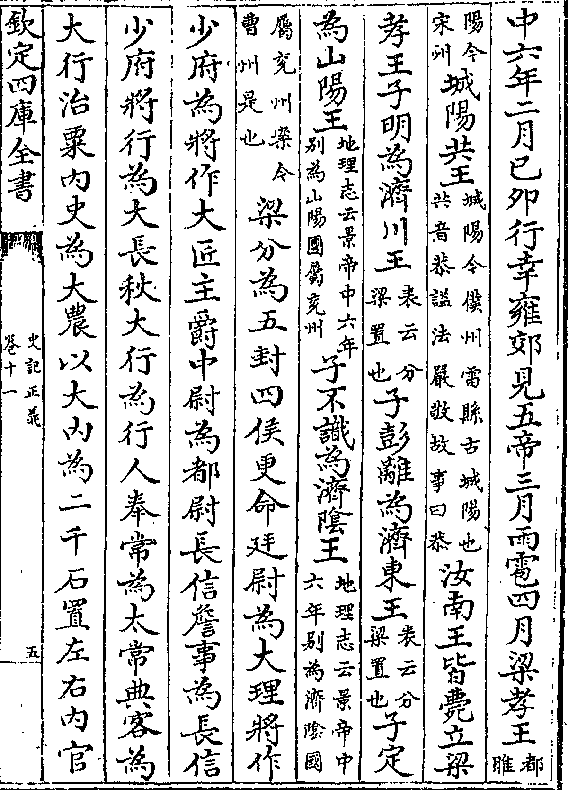 中六年二月已卯行幸雍郊見五帝三月雨雹四月梁孝王都睢
陽今宋州城陽共王城陽今濮州雷縣古城陽也共音恭諡法嚴敬故事曰恭汝南王皆薨立梁
孝王子明為濟川王表云分梁置也子彭離為濟東王表云分梁置也子定
為山陽王地理志云景帝中六年别為山陽國屬兖州子不識為濟陰王地理志云景帝中六年别為濟陰國
屬兖州案今曹州是也梁分為五封四侯更命廷尉為大理將作
少府為將作大匠主爵中尉為都尉長信詹事為長信
少府將行為大長秋大行為行人奉常為太常典客為
大行治粟内史為大農以大内為二千石置左右内官
欽定四庫全書
史記正義
卷十一
五